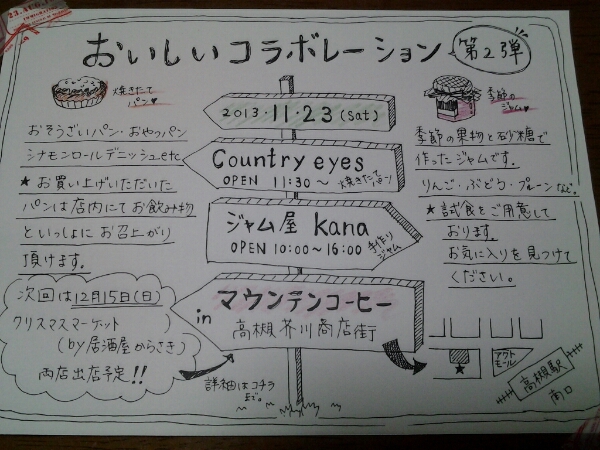 おいしいコラボレーション
第2弾
焼きたて
パン♥
おそうざいパン・おやつパン
シナモンロールデニッシュetc
★お買い上げいただいた
パンは店内にてお飲み物
といっしょにお召上がり
頂けます。
2013・11・23 (sat)
Country eyes
OPEN 11:30〜 焼きたてパン
ジャム屋 kana
OPEN 10:00〜16:00
手作り
ジャム
in
マウンテンコーヒー
高槻芥川商店街
季節の
ジャム♥
季節の果物と砂糖で
作ったジャムです。
りんご・ぶどう・プルーンなど。
★試食をご用意して
おります。
お気に入りを見つけて
ください。
次回は12月15日(日)
クリスマスマーケット
(by居酒屋からさき)
両店出店予定!!
詳細はコチラ
まで。
★
アクト
モール
高槻駅
南口